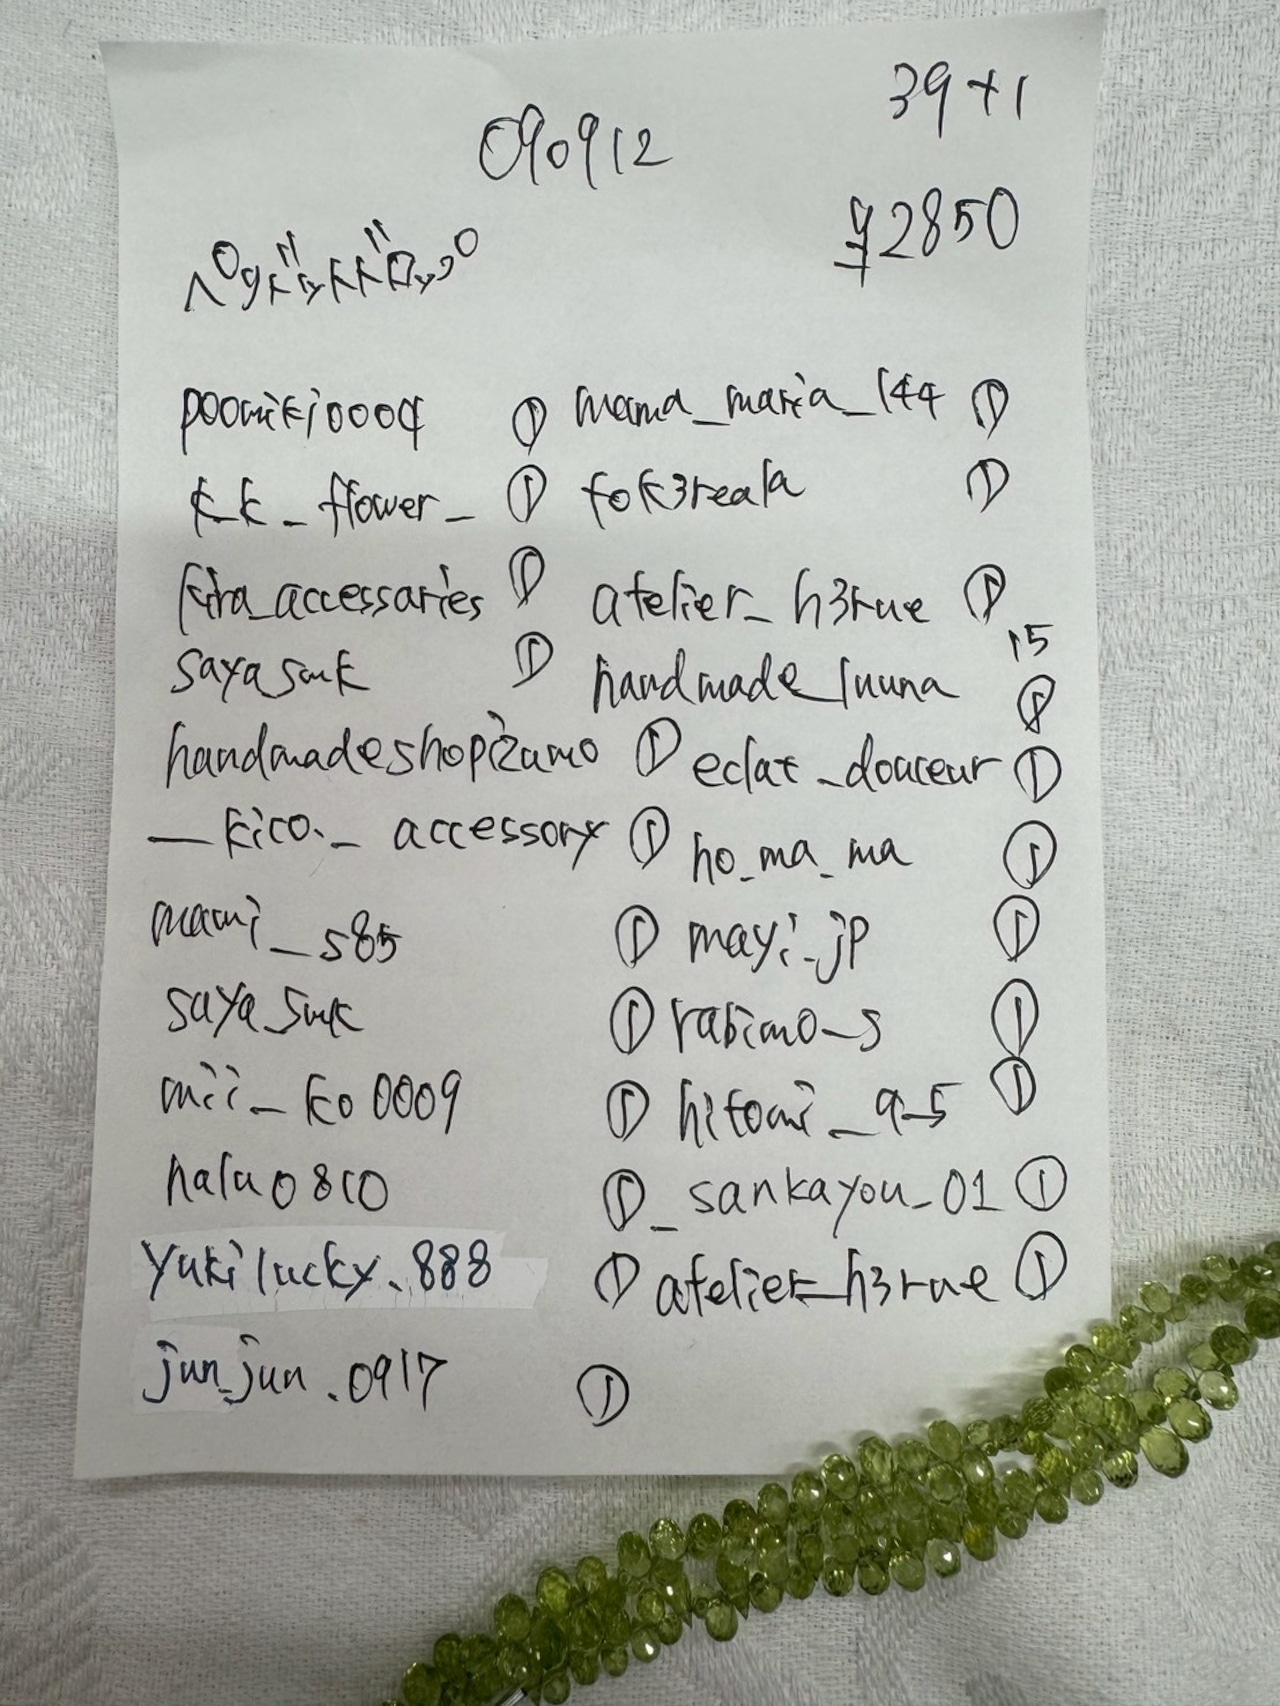 39+1
090912
¥2850
ペリドットドロップ
poomiki0004 ① mama_maria_144 ①
k_k_flower_ ① fok3reala ①
kira_accessaries ① atelier_h3rue ①
sayasmk ① handmade_luuna 15
handmadeshopizumo ① eclat_douceur ①
__kico._accessory ① ho_ma_ma ①
mami_s85 ① mayi_jp ①
sayasmk ① rabimo_s ①
mii_ko0009 ① hitomi_a_5 ①
halu0810 ① _sankayou_01 ①
yukilucky.888 ① atelier_h3rue ①
jun_jun.0917 ①